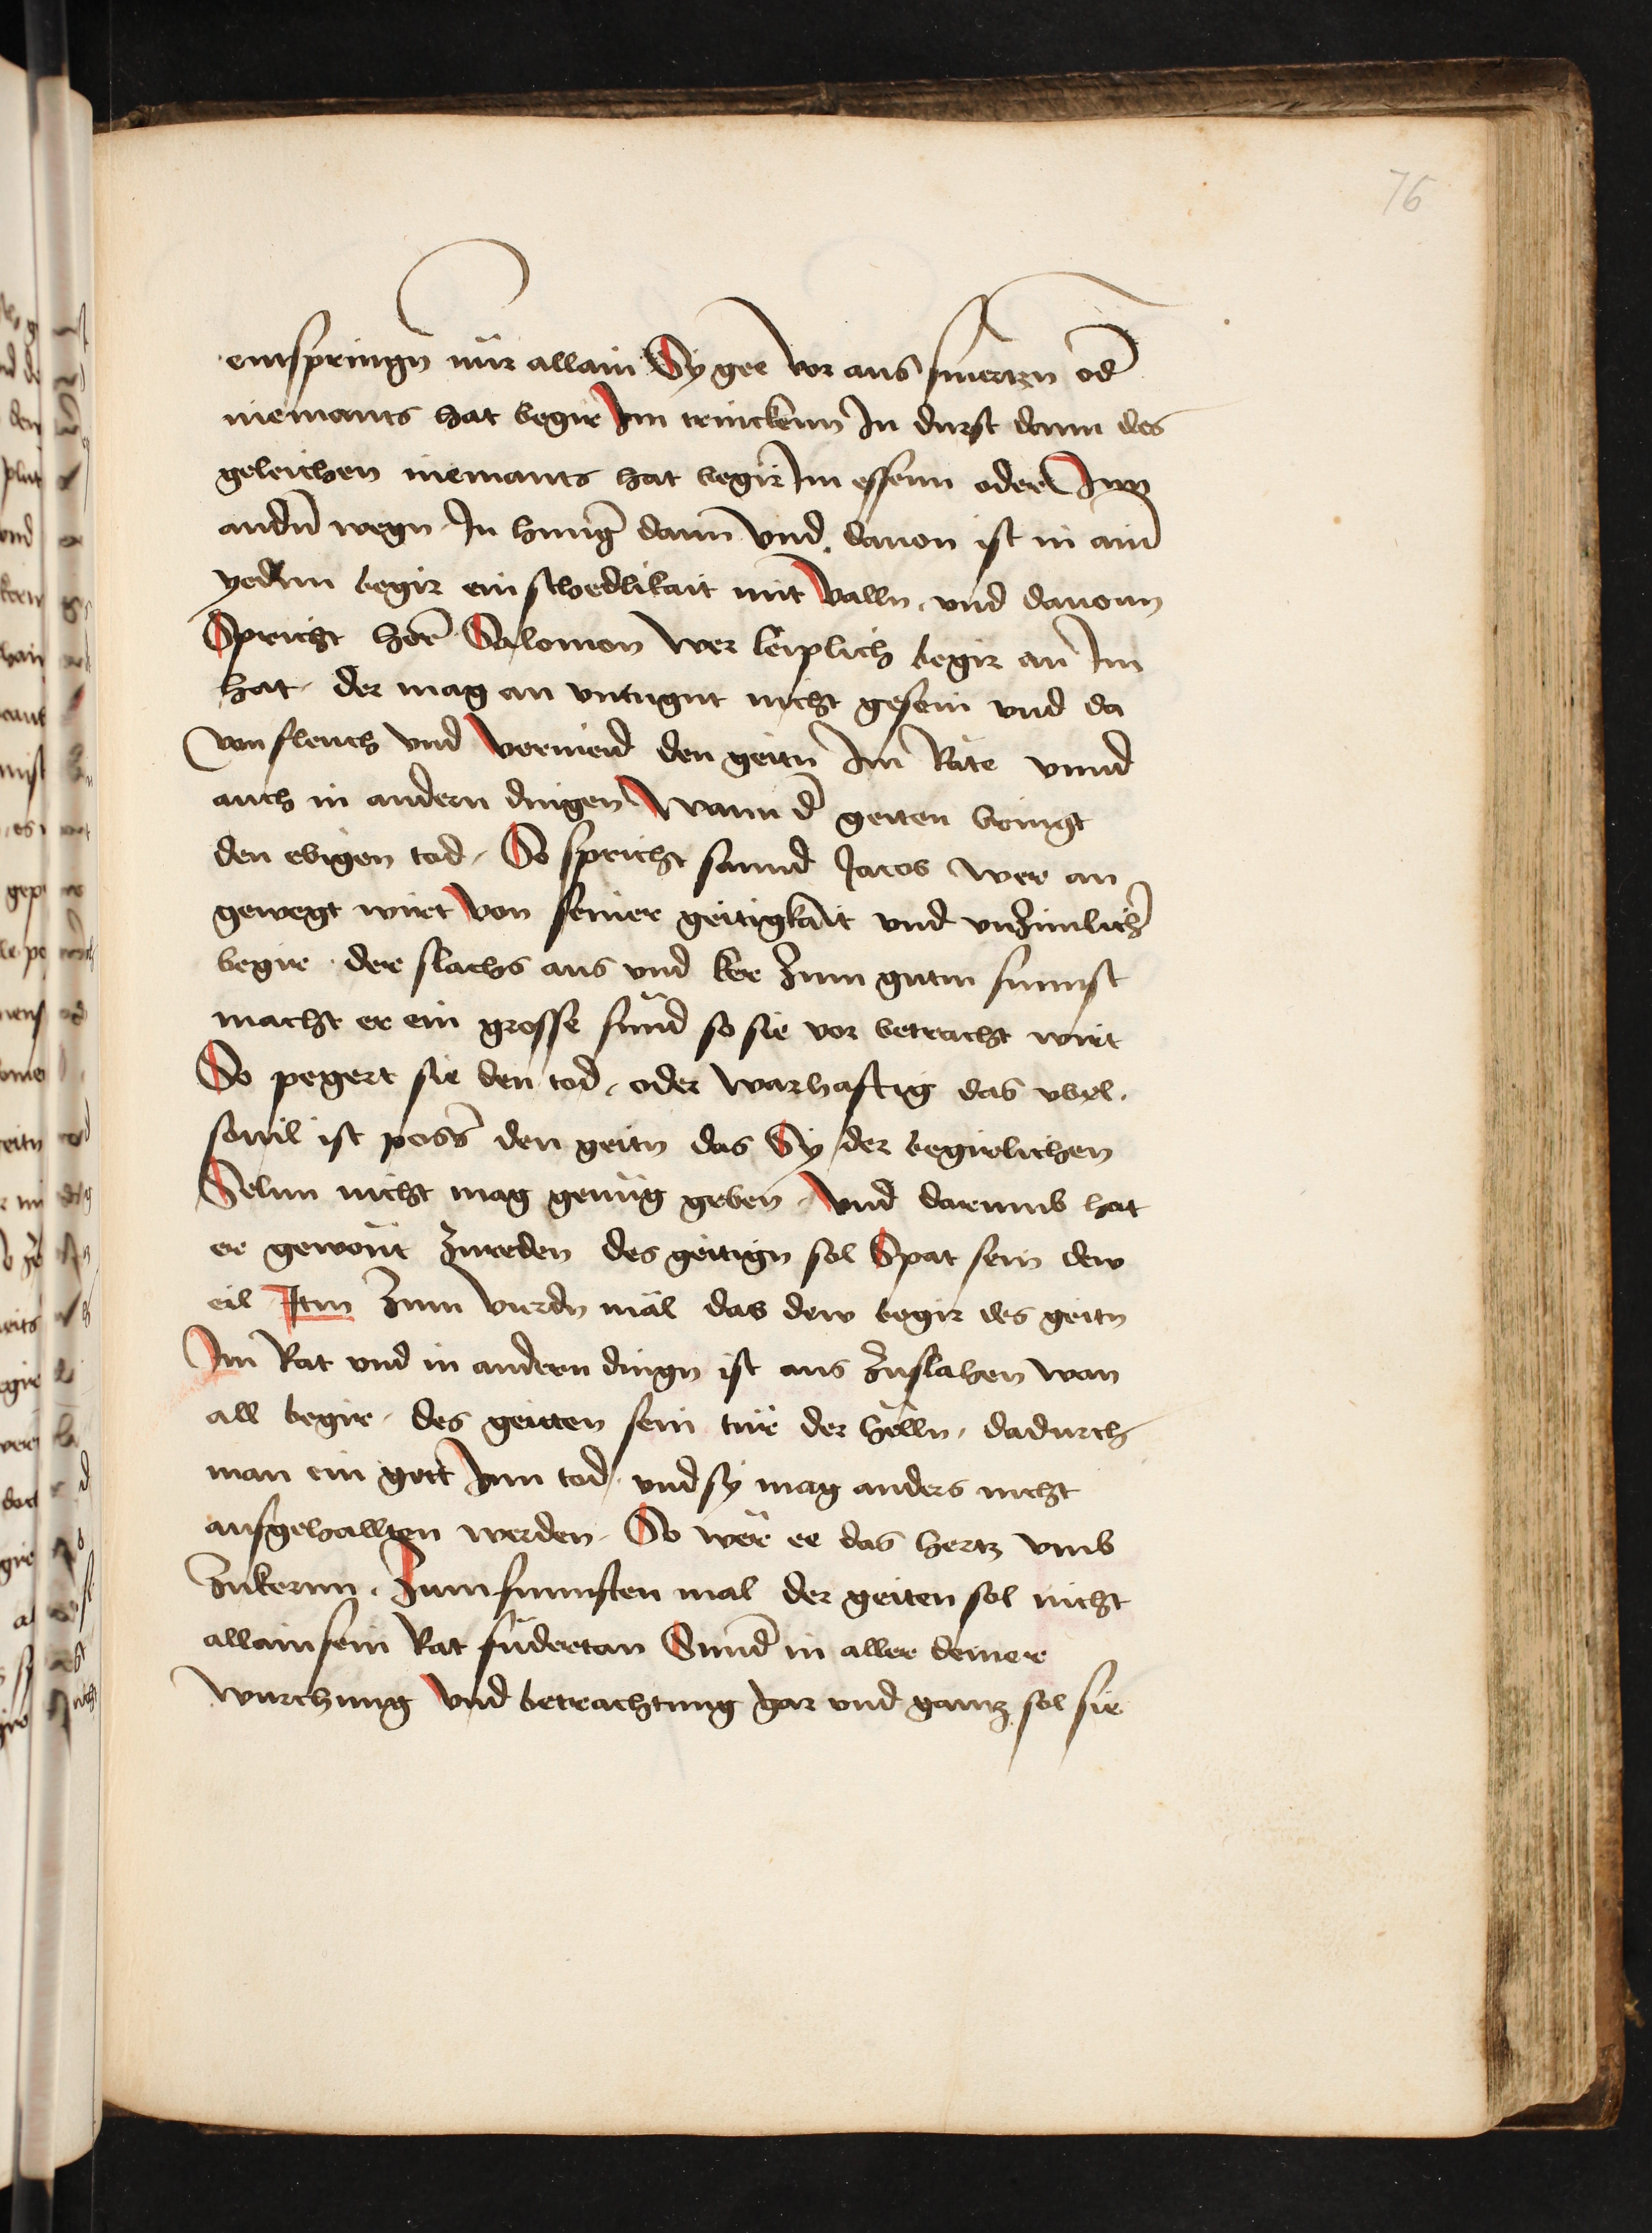 76
entspringn nür allain Sy gee vor aus smertzn od̄
niemants hat begir Im trinckenn In durst dann des
geleichen niemants hat begir Im essenn oder Inn
andn̄ wegn In hunḡ dann Vnd dauon ist in aim̄
yedem begir ein schedlikait mit Valln, vnd dauonn
Spricht her̄ Salomon wer leiplich begir an Im
hat, der mag an vntugnt nicht gesein vnd da
von fleuch vnd vermeid den geitn Im Rate vnnd
auch in andern dingen Wann d̄ geiten bringt
den ebigen tod, So spricht sannd Jacob wer an
gewegt wirt von seiner geitigkait vnd vnzimlich̄
begir der slachs aus vnd ker zum gutm sunnst
macht er ein grosse sünd so sie vor betracht wirt
So pegert sie den tod, oder warhafftig das vbel,
souil ist poss̄ den geitn das Sy der begirlichen
Selnn nicht mag genüg geben, Vnd darumb hat
er gewont zureden des geitign sol Spat sein dew
eil Itm̄ zum vierdn mäl das dew begir des geitn
Im Rat vnd in andern dingn ist aus zuslahen wan
all begir, des geitten sein tür der helln, dadurch
man ein geet Inn tod, vnd sy mag anders nicht
aufgehallten werden, So wer er das hertz vmb
zukernn, Zum funnften mal der geiten sol nicht
allain sein Rat füdertan Sund̄ in aller deiner
wurchung Vnd betrachtung gar vnd gantz sol sie